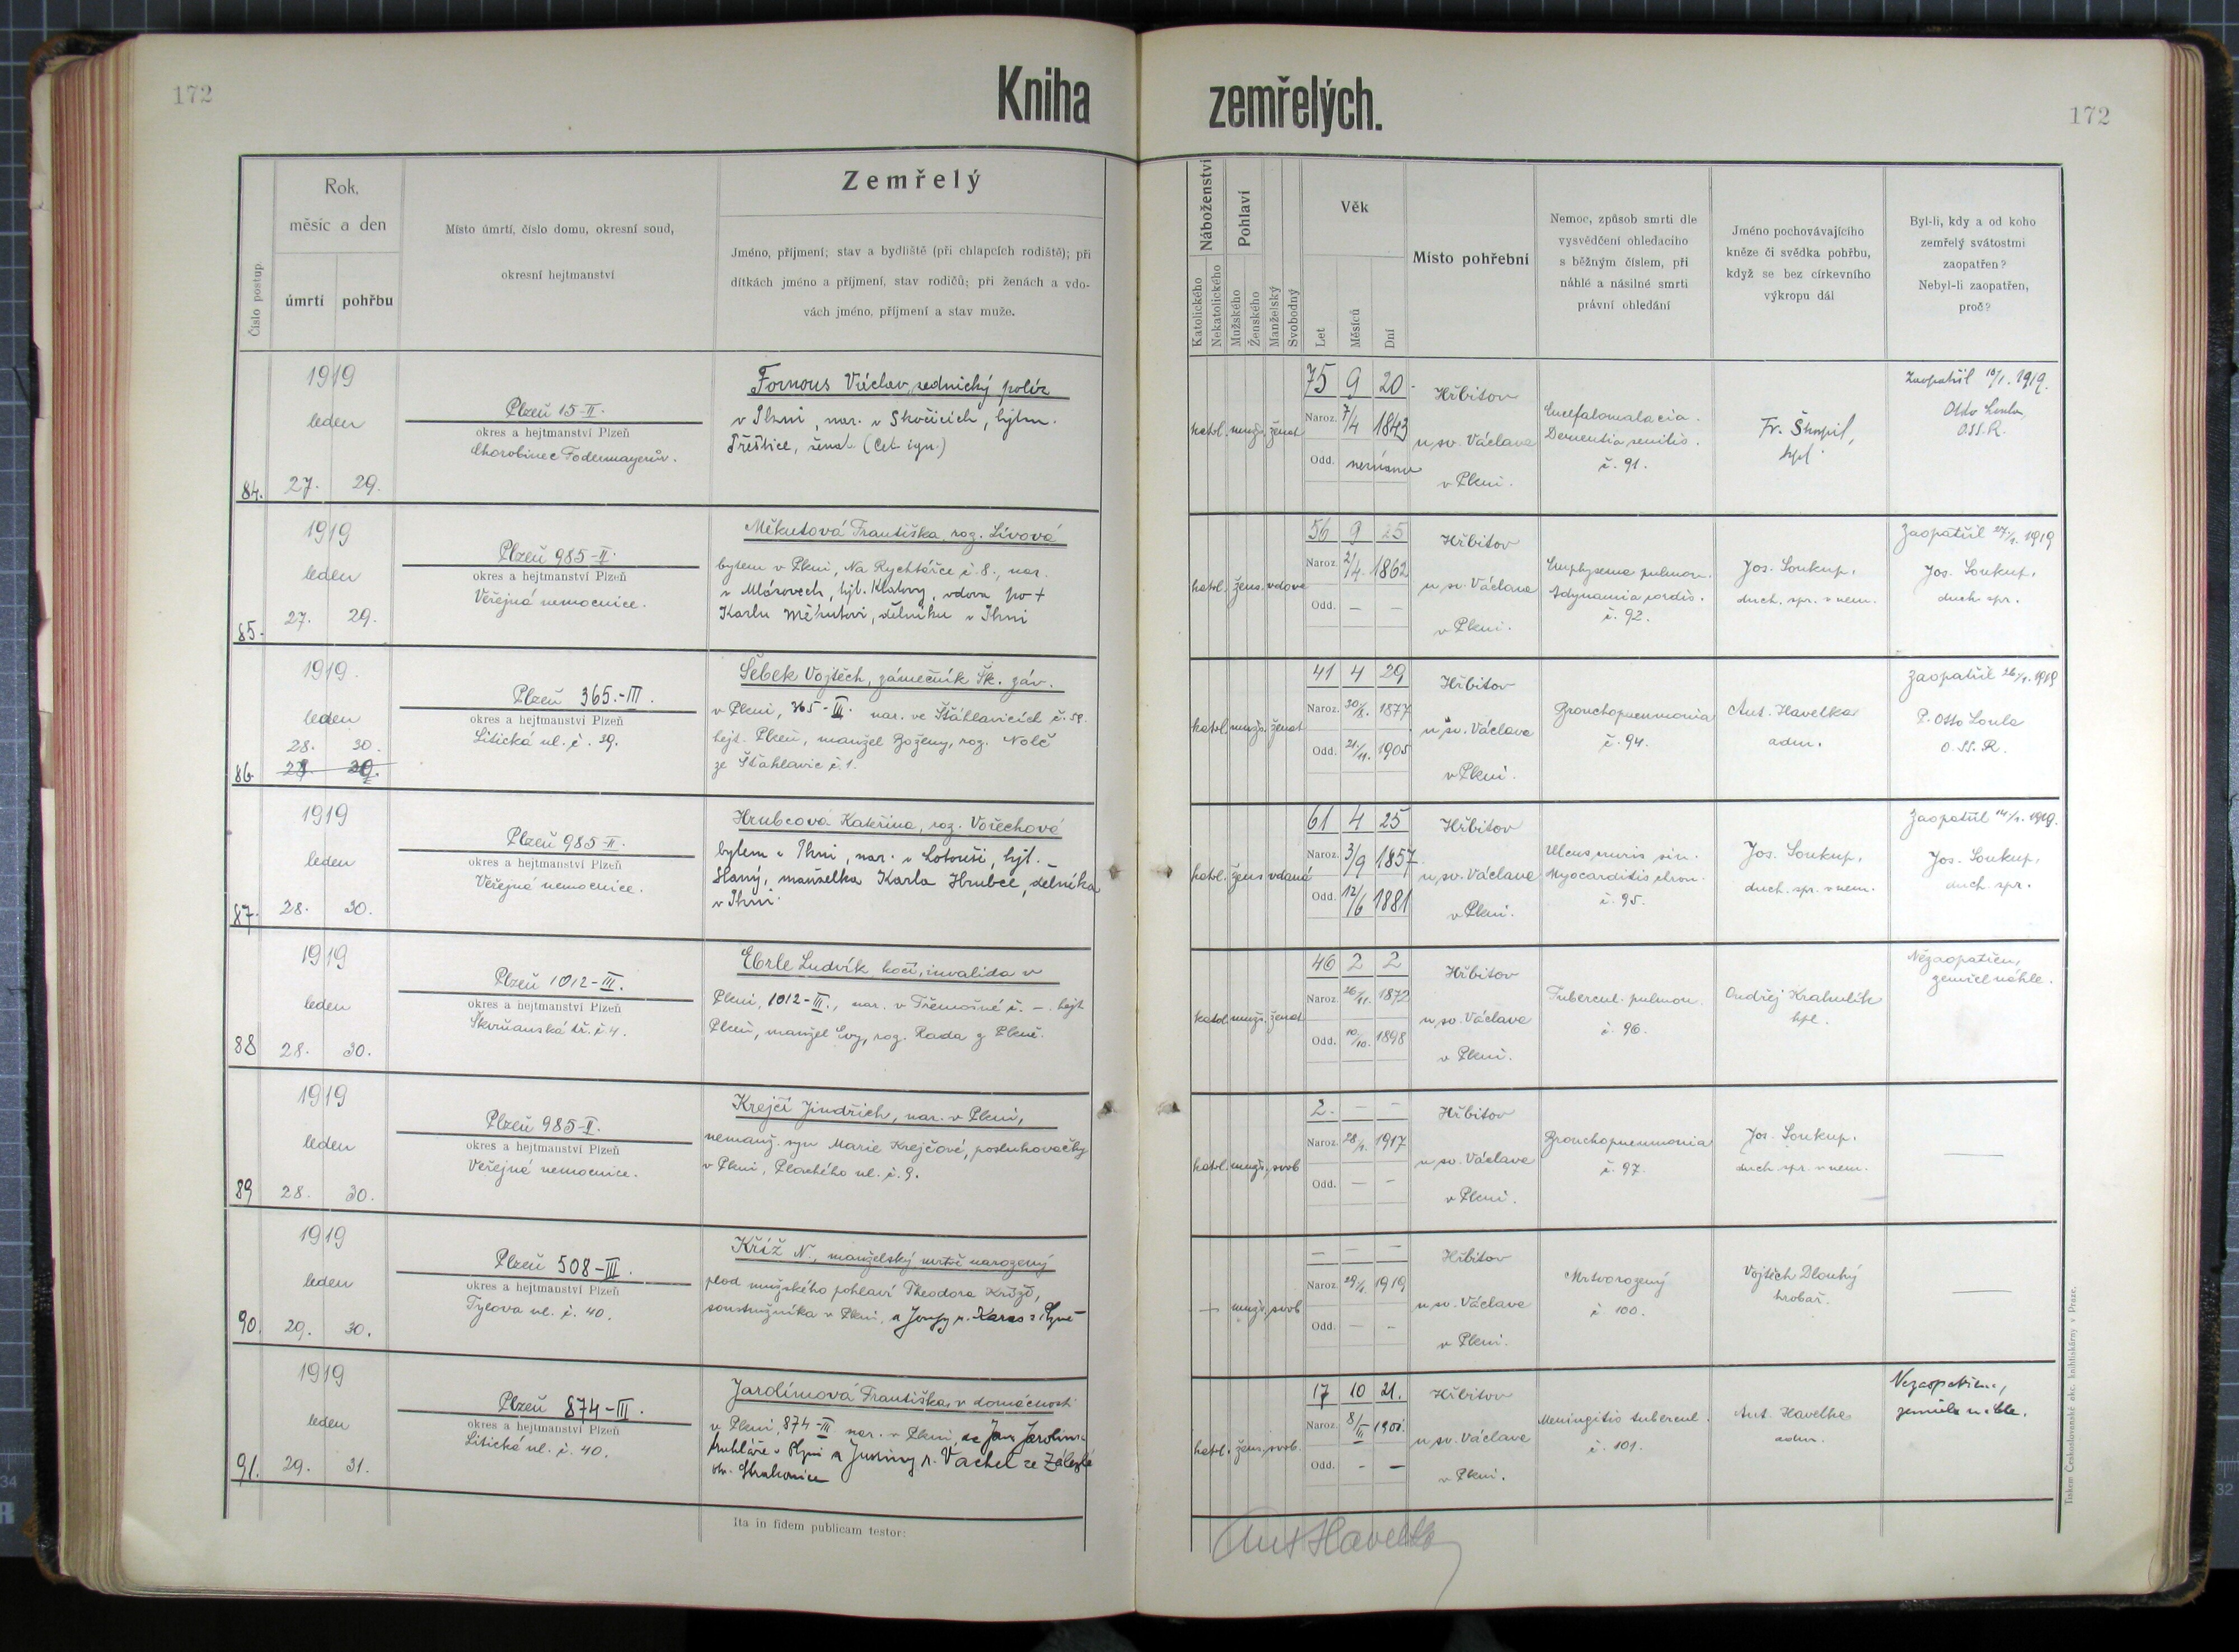 172
Kniha
zemřelých.
172
Číslo postup.
Rok,
měsíc a den
úmrtí
pohřbu
Místo úmrtí, číslo domu, okresní soud,
okresní hejtmanství
Zemřelý
Jméno, příjmení; stav a bydliště (při chlapcích rodiště); při
dítkách jméno a příjmení, stav rodičů; při ženách a vdo-
vách jméno, příjmení a stav muže.
Náboženství
Katolického
Nekatolického
Pohlaví
Mužského
Ženského
Manželský
Svobodný
Věk
Let
Měsíců
Dní
Místo pohřební
Nemoc, způsob smrti dle
vysvědčení ohledacího
s běžným číslem, při
náhlé a násilné smrti
právní ohledání
Jméno pochovávajícího
kněze či svědka pohřbu,
když se bez církevního
výkropu dál
Byl-li, kdy a od koho
zemřelý svátostmi
zaopatřen?
Nebyl-li zaopatřen,
proč?
84.
1919
leden
27. 29.
Plzeň 15-II.
okres a hejtmanství Plzeň
Chorobinec Fodermayerův.
Václav, zednický polír
nar. v Skočicích, hejtm.
Přeštice, ženat
katol. mužs. ženat
75 9 20
Naroz. 7/4 1843
Odd. neznámo
Hřbitov
u sv. Václava
v Plzni.
Encefalomalacia.
Dementia senilis.
č. 91.
Fr. Škopil,
kpl.
Zaopatřil 1919.
Otto Loula,
O.SS.R.
85.
1919
leden
27. 29.
Plzeň 985-II.
okres a hejtmanství Plzeň
Veřejná nemocnice.
Měkutová Františka, roz. Lívová
bytem v Plzni, Na Rychtářce č. 8., nar.
v Mlázovech, hejt. Klatovy, vdova po +
Karlu Měkutovi, dělníku v Plzni
katol. žens. vdova
56 9 25
Naroz. 2/4. 1862
Odd. — —
Hřbitov
u sv. Václava
v Plzni.
Emphysema pulmon.
Adynamia cordis.
č. 92.
Jos. Soukup,
duch. spr. v nem.
Zaopatřil 27/1. 1919
Jos. Soukup,
duch. spr.
86.
1919.
leden
28. 30.
Plzeň 365.-III.
okres a hejtmanství Plzeň
Litická ul. č. 39.
Šebek Vojtěch, zámečník Šk. záv.
v Plzni, 365-III. nar. ve Šťáhlavicích č. 58.
hejt. Plzeň, manžel Boženy, roz. Nolč
ze Šťáhlavic č. 1.
katol. mužs. ženat
41 4 29
Naroz. 30/8. 1877
Odd. 21/11. 1905
Hřbitov
u sv. Václava
v Plzni.
Bronchopneumonia
č. 94.
Ant. Havelka
adm.
Zaopatřil 26/1. 1919
P. Otto Loula
O.SS.R.
87.
1919
leden
28. 30.
Plzeň 985-II.
okres a hejtmanství Plzeň
Veřejná nemocnice.
Hrubcová Kateřina, roz. Vořechová
bytem v Plzni, nar. v Lotouši, hejt.
Slaný, manželka Karla Hrubce, dělníka
v Plzni.
katol. žens. vdaná
61 4 25
Naroz. 3/9 1857
Odd. 12/6 1881
Hřbitov
u sv. Václava
v Plzni.
Ulcus cruris sin.
Myocarditis chron.
č. 95.
Jos. Soukup,
duch. spr. v nem.
Zaopatřil 14/1. 1919.
Jos. Soukup,
duch. spr.
88
1919
leden
28. 30.
Plzeň 1012-III.
okres a hejtmanství Plzeň
Škvrňanská tř. č. 4.
Eberle Ludvík, kočí, invalida v
Plzni, 1012-III., nar. v Třemošné č. —. hejt
Plzeň, manžel Evy, roz. Rada z Plzně.
katol. mužs. ženat
46 2 2
Naroz. 26/11. 1872
Odd. 10/10. 1898
Hřbitov
u sv. Václava
v Plzni.
Tubercul. pulmon.
č. 96.
Ondřej Krahulík
kpl.
Nezaopatřen,
zemřel náhle.
89
1919
leden
28. 30.
Plzeň 985-II.
okres a hejtmanství Plzeň
Veřejná nemocnice.
Krejčí Jindřich, nar. v Plzni,
nemanž. syn Marie Krejčové, posluhovačky
v Plzni, Plachého ul. č. 9.
katol. mužs. svob
2. — —
Naroz. 28/1. 1917
Odd. — —
Hřbitov
u sv. Václava
v Plzni.
Bronchopneumonia
č. 97.
Jos. Soukup.
duch. spr. v nem.
—
90.
1919
leden
29. 30.
Plzeň 508-III.
okres a hejtmanství Plzeň
Tylova ul. č. 40.
Kříž N., manželský mrtvě narozený
plod mužského pohlaví Theodora Kříže,
soustružníka v Plzni, a Josefy r. Karas z Plzně
— mužs. svob
— — —
Naroz. 29/1. 1919
Odd. — —
Hřbitov
u sv. Václava
v Plzni.
Mrtvorozený
č. 100.
Vojtěch Dlouhý
hrobař.
—
91.
1919
leden
29. 31.
Plzeň 874-III.
okres a hejtmanství Plzeň
Litická ul. č. 40.
Jarolímová Františka, v domácnosti
v Plzni, 874-III nar. v Plzni, Jana Jarolíma
truhláře v Plzni a Justiny r. Vachel ze Zálezlé
okr. Strakonice
katol. žens. svob.
17 10 21.
Naroz. 8/III 1901.
Odd. - —
Hřbitov
u sv. Václava
v Plzni.
Meningitis tubercul.
č. 101.
Ant. Havelka
adm.
Nezaopatřena,
zemřela náhle.
Ita in fidem publicam testor:
Ant Havelka
Tiskem Československé akc. knihtiskárny v Praze.